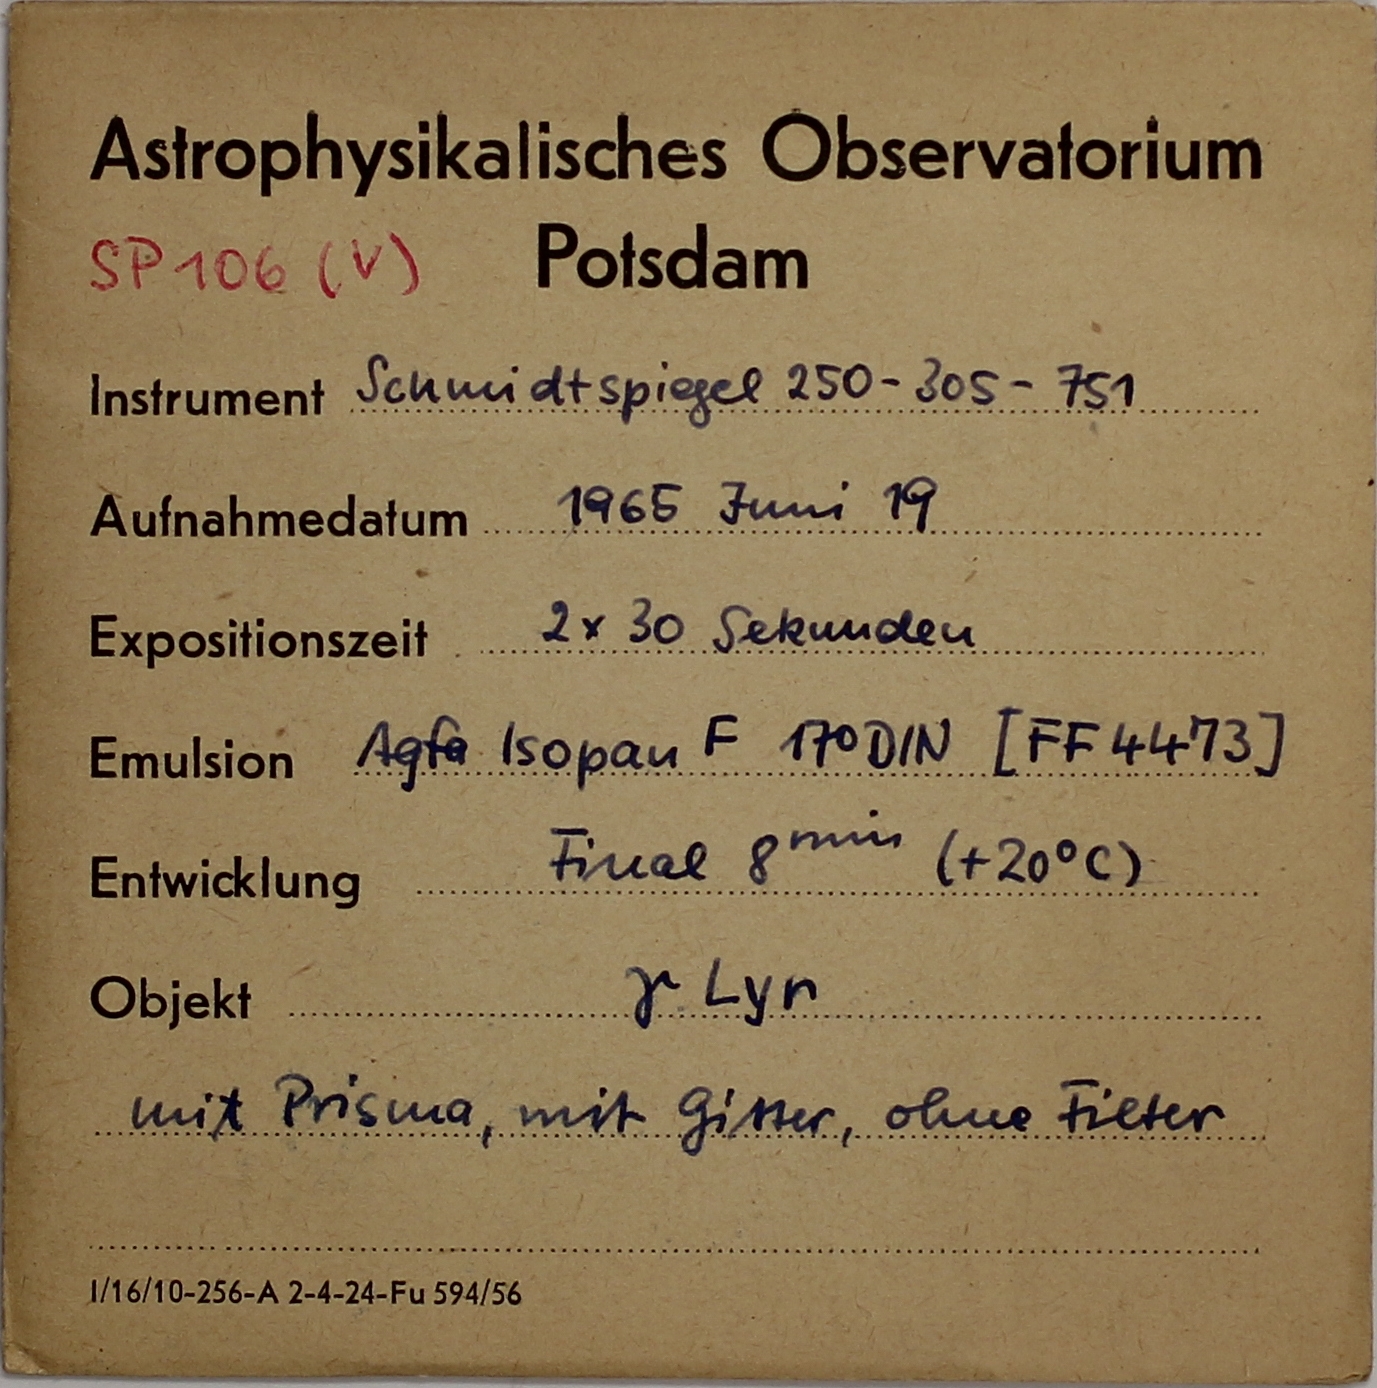 Astrophysikalisches Observatorium
SP 106 (V) Potsdam
Instrument Schmidtspiegel 250-305-751
Aufnahmedatum 1965 Juni 19
Expositionszeit 2x 30 Sekunden
Emulsion Agfa Isopan F 17° DIN [FF 4473]
Entwicklung Final 8 min (+20°C)
Objekt γ Lyr
mit Prisma, mit Gitter, ohne Filter
I/16/10-256-A 2-4-24-Fu 594/56